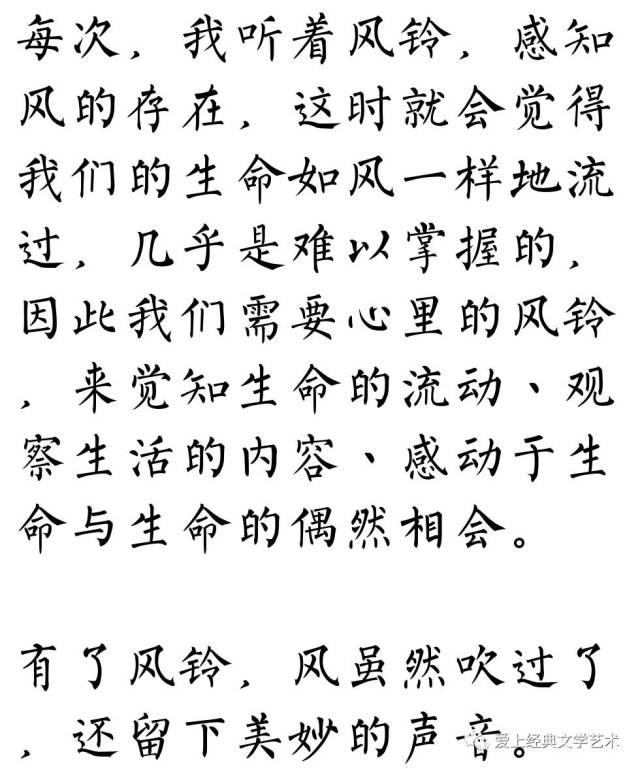 每次，我听着风铃，感知
风的存在，这时就会觉得
我们的生命如风一样地流
过，几乎是难以掌握的，
因此我们需要心里的风铃
，来觉知生命的流动、观
察生活的内容、感动于生
命与生命的偶然相会。
有了风铃，风虽然吹过了
，还留下美妙的声音。
爱上经典文学艺术